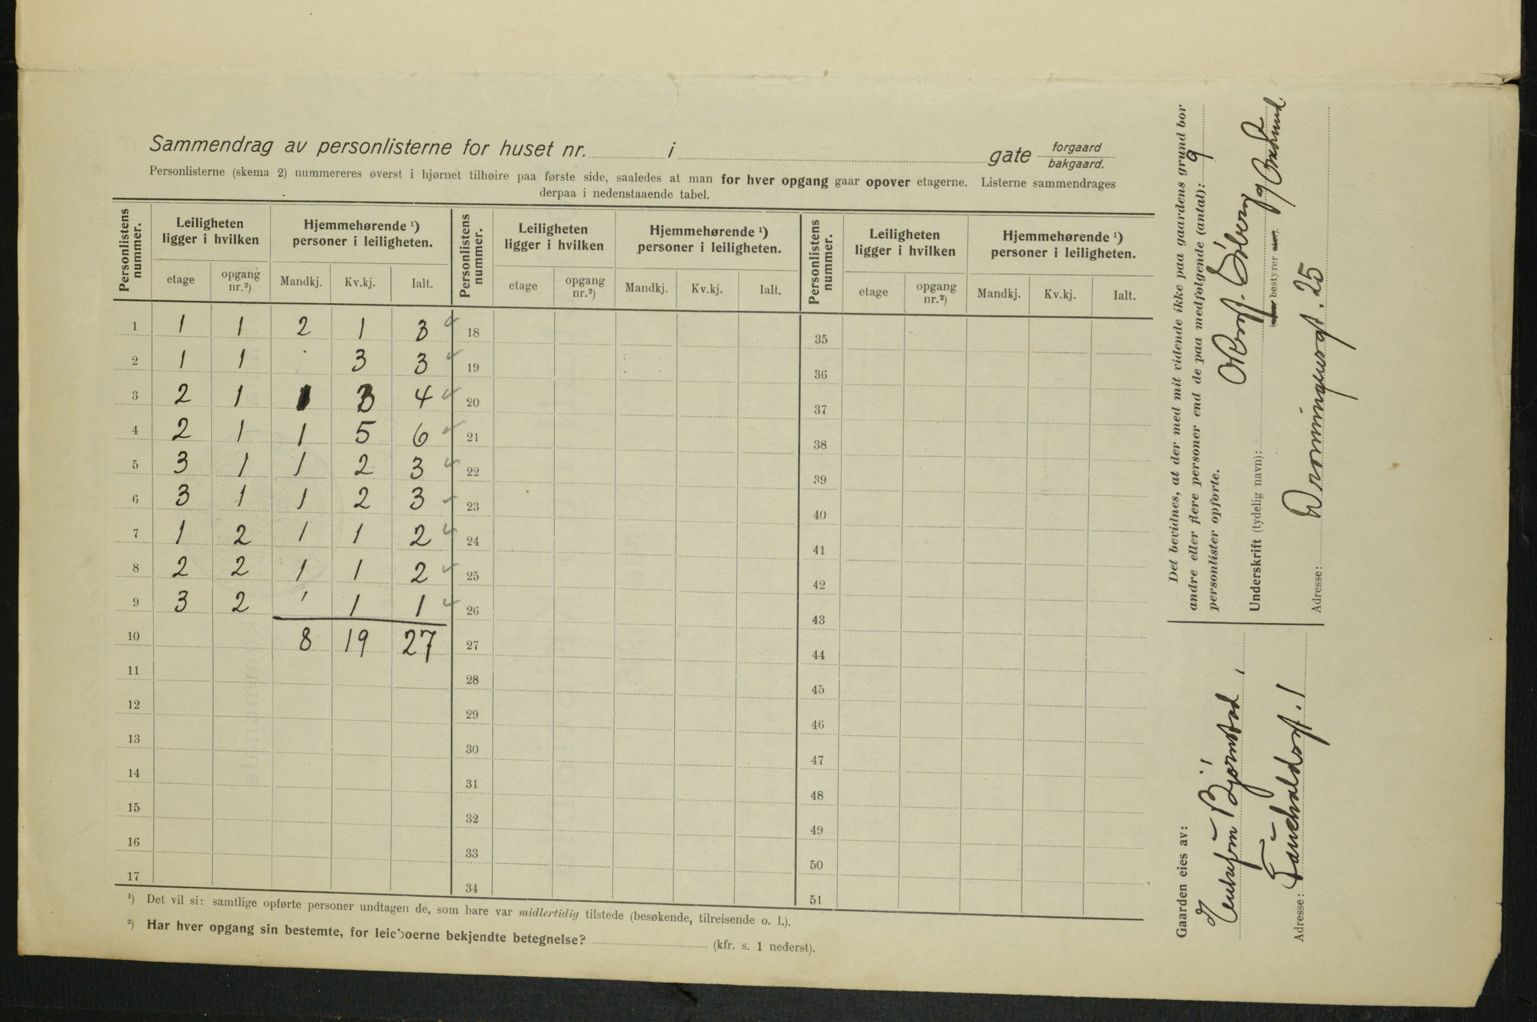 Sammendrag av personlisterne for huset nr. i gate forgaard bakgaard.
Personlisterne (skema 2) nummereres øverst i hjørnet tilhøire paa første side, saaledes at man for hver opgang gaar opover etagerne. Listerne sammendrages
derpaa i nedenstaaende tabel.
Personlistens nummer. Leiligheten ligger i hvilken Hjemmehørende ¹) personer i leiligheten. Personlistens nummer. Leiligheten ligger i hvilken Hjemmehørende ¹) personer i leiligheten. Personlistens nummer. Leiligheten ligger i hvilken Hjemmehørende ¹) personer i leiligheten.
etage opgang nr.²) Mandkj. Kv.kj. Ialt. etage opgang nr.²) Mandkj. Kv.kj. Ialt. etage opgang nr.²) Mandkj. Kv.kj. Ialt.
1 1 1 2 1 3 18 35
2 1 1 3 3 19 36
3 2 1 1 3 4 20 37
4 2 1 1 5 6 21 38
5 3 1 1 2 3 22 39
6 3 1 1 2 3 23 40
7 1 2 1 1 2 24 41
8 2 2 1 1 2 25 42
9 3 2 1 1 26 43
10 8 19 27 27 44
11 28 45
12 29 46
13 30 47
14 31 48
15 32 49
16 33 50
17 34 51
¹) Det vil si: samtlige opførte personer undtagen de, som bare var midlertidig tilstede (besøkende, tilreisende o. l.).
²) Har hver opgang sin bestemte, for leieboerne bekjendte betegnelse? (kfr. s. 1 nederst).
Det bevidnes, at der med mit vidende ikke paa gaardens grund bor
andre eller flere personer end de paa medfølgende (antal): 9
personlister opførte.
Underskrift (tydelig navn):
bestyrer
Adresse: Dronningensgt. 25
Gaarden eies av:
Bjørnstad
Adresse: